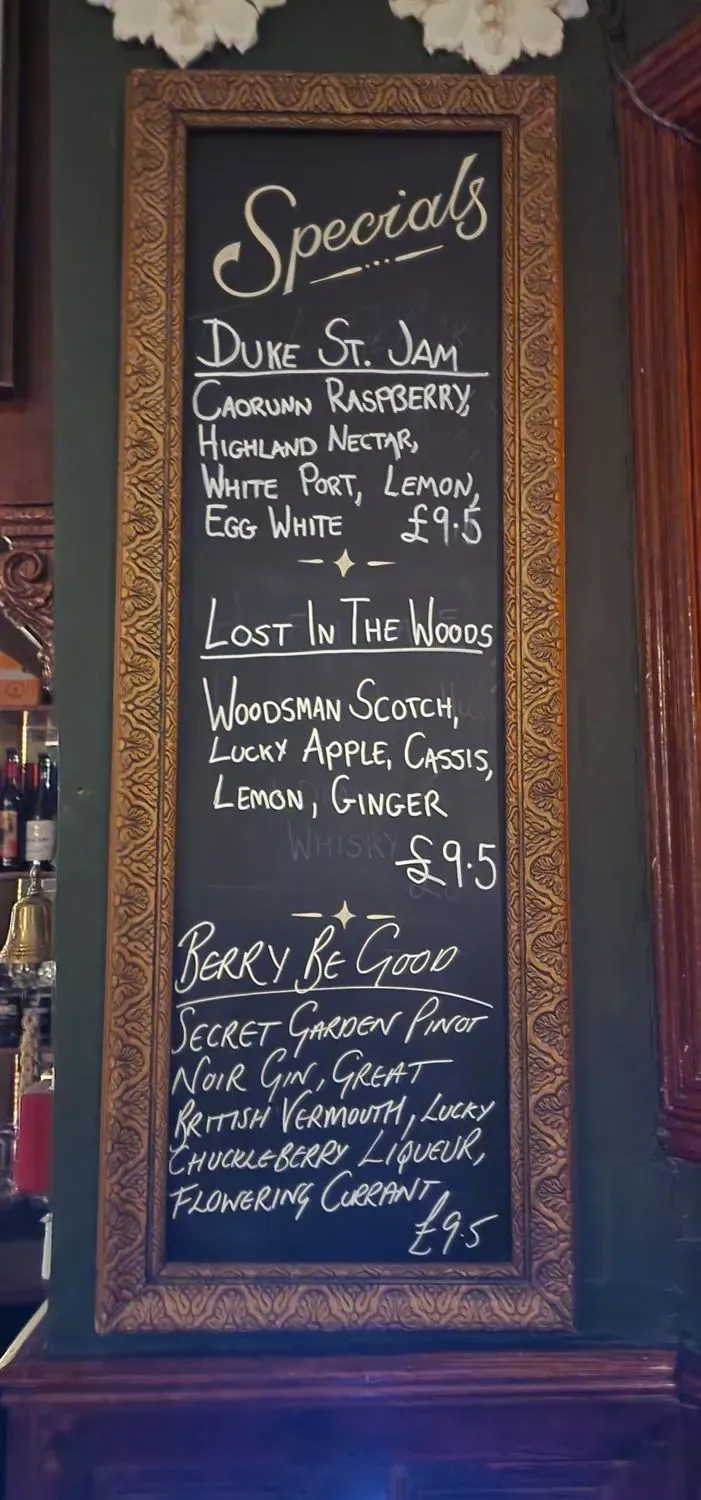 Specials
DUKE ST. JAM
CAORUNN RASPBERRY,
HIGHLAND NECTAR,
WHITE PORT, LEMON,
EGG WHITE £9.5
LOST IN THE WOODS
WOODSMAN SCOTCH,
LUCKY APPLE, CASSIS,
LEMON, GINGER
WHISKY
£9.5
BERRY BE GOOD
SECRET GARDEN PINOT
NOIR GIN, GREAT
BRITISH VERMOUTH, LUCKY
CHUCKLEBERRY LIQUEUR,
FLOWERING CURRANT
£9.5